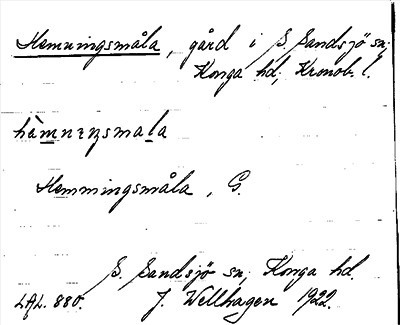 Hemningsmåla, gård i S. Sandsjö sn;
Konga hd; Kronob. l.
hàmnıŋsmala
Hemmingsmåla, G.
S. Sandsjö sn; Konga hd.
LAL. 880. J. Wellhagen 1922.